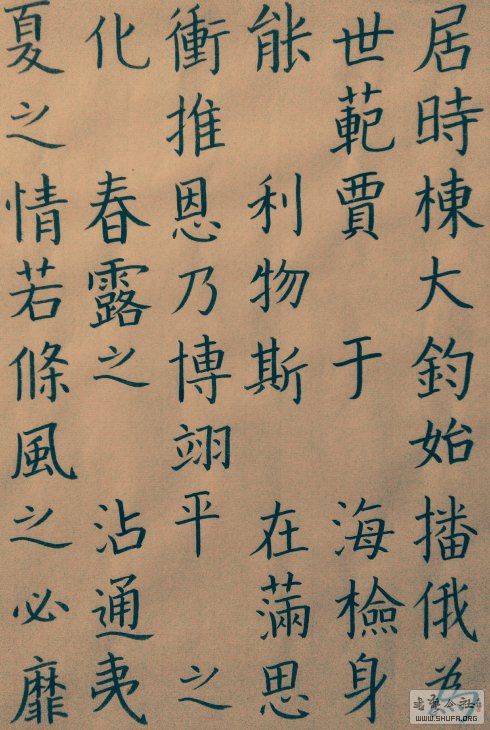 居時棟大鈞始播俄為
世範賈于海檢身
能利物斯在滿思
衝推恩乃博翊平之
化春露之沾通夷
夏之情若條風之必靡
WWW.SHUFA.ORG